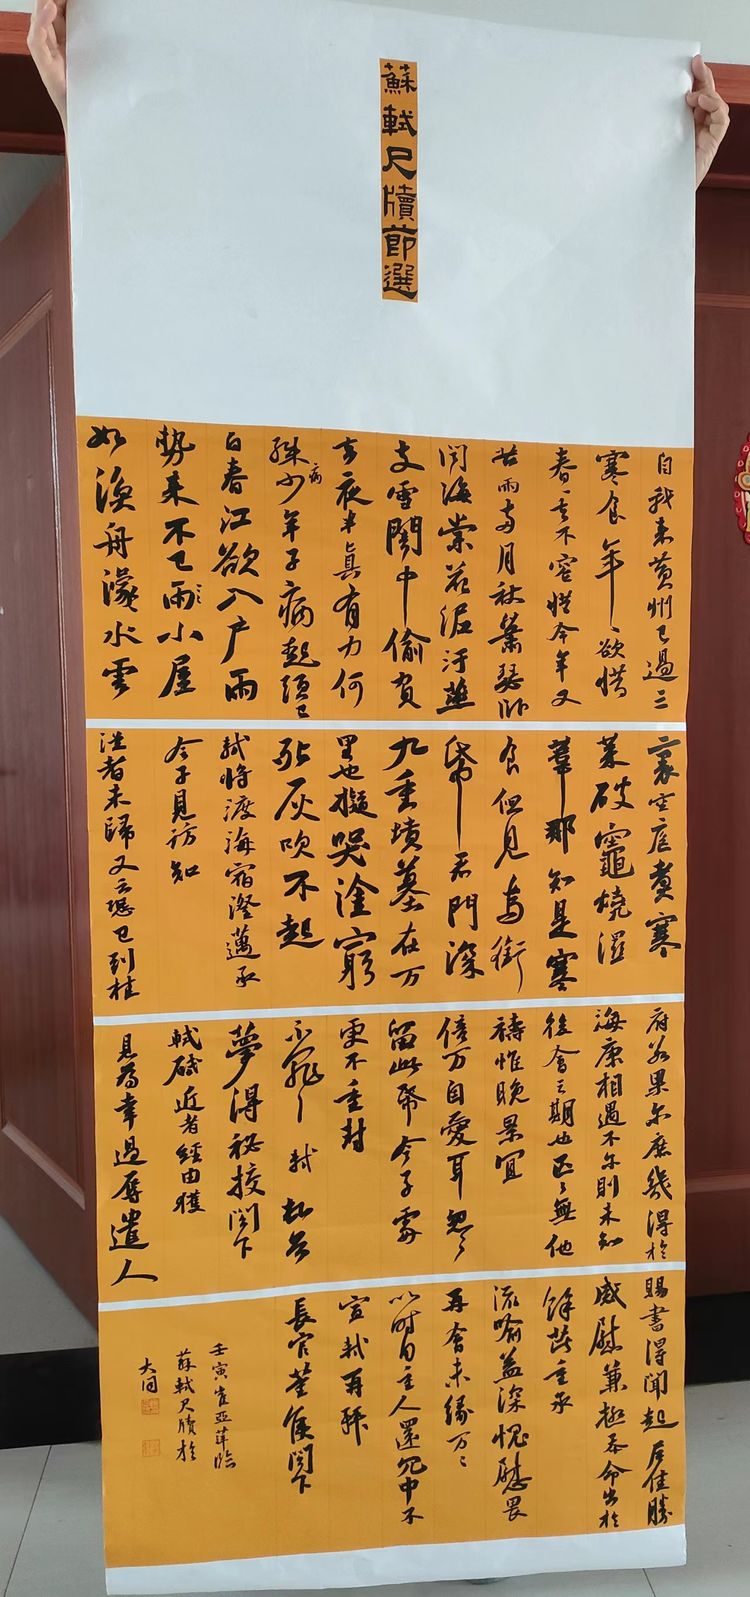 蘇軾尺牘節選
自我来黄州已過三
寒食年々欲惜
春々去不容惜今年又
苦雨兩月秋蕭瑟卧
聞海棠花泥汙燕
支雪闇中偷負
去夜半真有力何
殊少年子病起頭已
病
白春江欲入户雨
勢来不已雨小屋
如漁舟濛水雲
裏空庖煑寒
菜破竈燒濕
葦那知是寒
食但見烏銜
帋君門深
九重墳墓在万
里也擬哭塗窮
死灰吹不起
軾將渡海宿澄邁承
令子見訪知
從者未歸又云恐已到桂
府若果尓庶幾得於
海康相遇不尓則未知
後會之期也区々無他
禱惟晚景宜
倍万自愛耳忽々
留此帋令子處
更不重封
不罪々軾頓首
夢得祕校閤下
軾啟近者經由獲
見為幸過辱遣人
賜書得聞起居佳勝
感慰兼極忝命出於
餘芘重承
流喻益深愧慰畏
再會未緣万々
以時自重人還冗中不
宣軾再拜
長官董侯閤下
壬寅崔亞萍臨
蘇軾尺牘於
大同